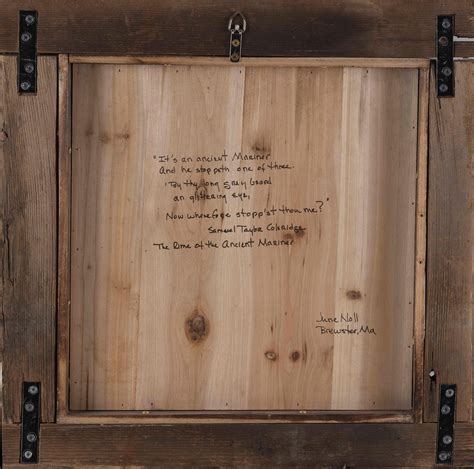 "It's an ancient Mariner
And he stoppeth one of three.
'By thy long gray beard
an glittering eye,
Now wherefore stopp'st thou me?"
Samuel Taylor Coleridge
The Rime of the Ancient Mariner
June Noll
Brewster, Ma